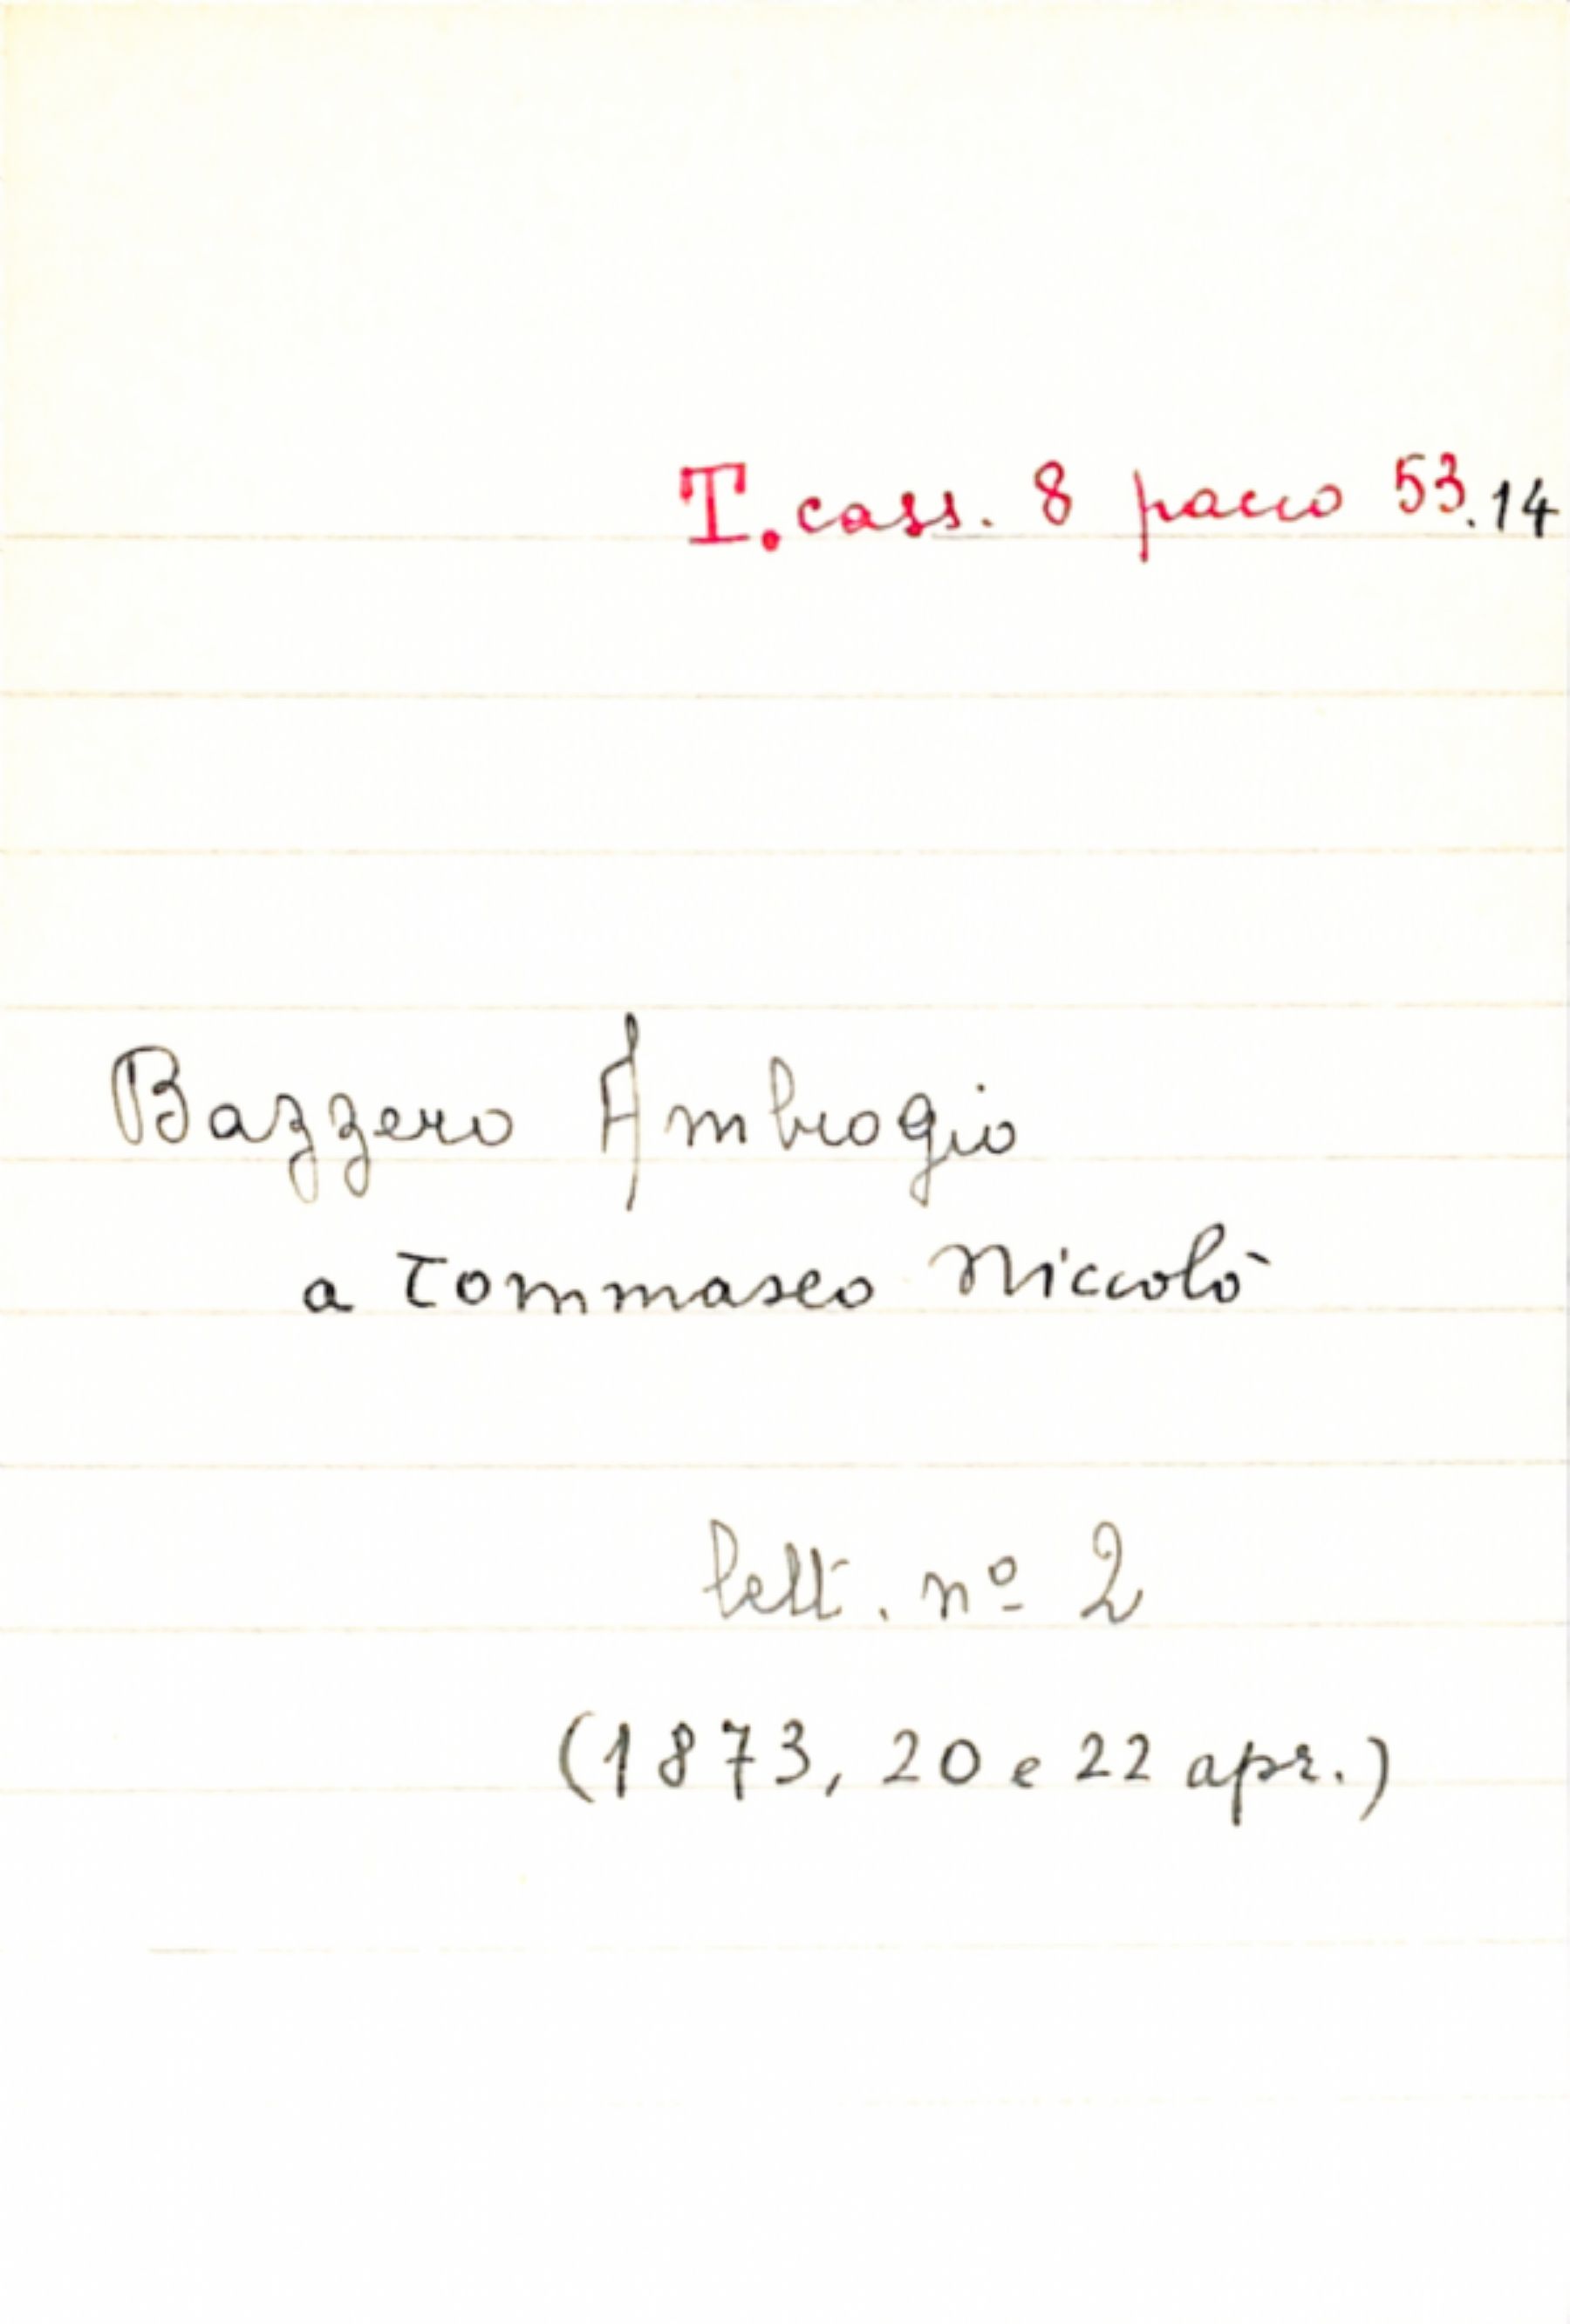 T. cass. 8 pacco 53.14
Bazzero Ambrogio
a Tommaseo Niccolò
lett. nº 2
(1873, 20 e 22 apr.)